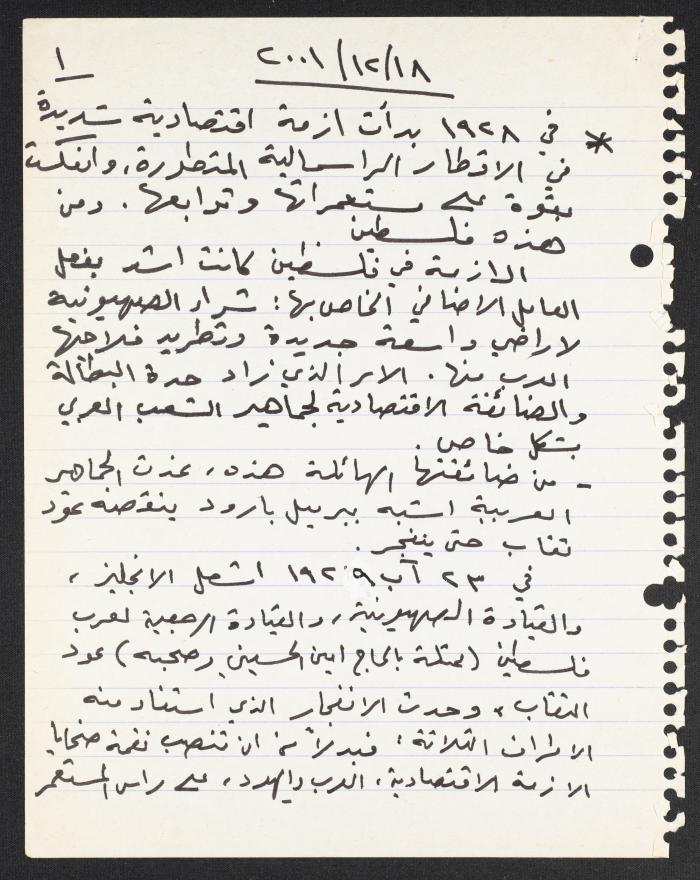 ١
٢٠٠١/١٢/١٨
* في ١٩٢٨ بدأت ازمة اقتصادية شديدة
في الاقطار الراسمالية المتطورة، وانعكست
بقوة على مستعمراتها وتوابعها. ومن
هذه فلسطين
الازمة في فلسطين كانت اشد بفعل
العامل الاضافي الخاص بها: شراء الصهيونية
لاراضي واسعة جديدة وتطريد فلاحيها
العرب منها. الامر الذي زاد حدة البطالة
والضائقة الاقتصادية لجماهير الشعب العربي
بشكل خاص.
- من ضائقتها الهائلة هذه، غدت الجماهير
العربية اشبه ببرميل بارود ينقصه عود
ثقاب حتى ينفجر.
في ٢٣ آب ١٩٢٩ اشعل الانجليز،
والقيادة الصهيونية، والقيادة الرجعية لعرب
فلسطين (ممثلة بالحاج امين الحسيني وصحبه) عود
الثقاب، وحدث الانفجار الذي استفاد منه
الاطراف الثلاثة: فبدلاً من ان تنصب نقمة ضحايا
الازمة الاقتصادية، العرب واليهود، على راس المستعمر